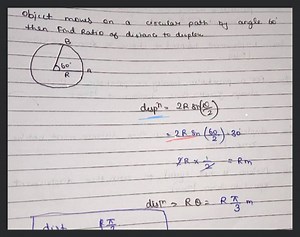 Object moves on a circular path by angle 60°
then Find Ratio of distance to displcn.
B
60°
R
A
dispⁿ = 2R sin(60/2)
= 2R sin(60/2) = 30°
2R × 1/2 = Rm
distⁿ = Rθ = R π/3 m
dist